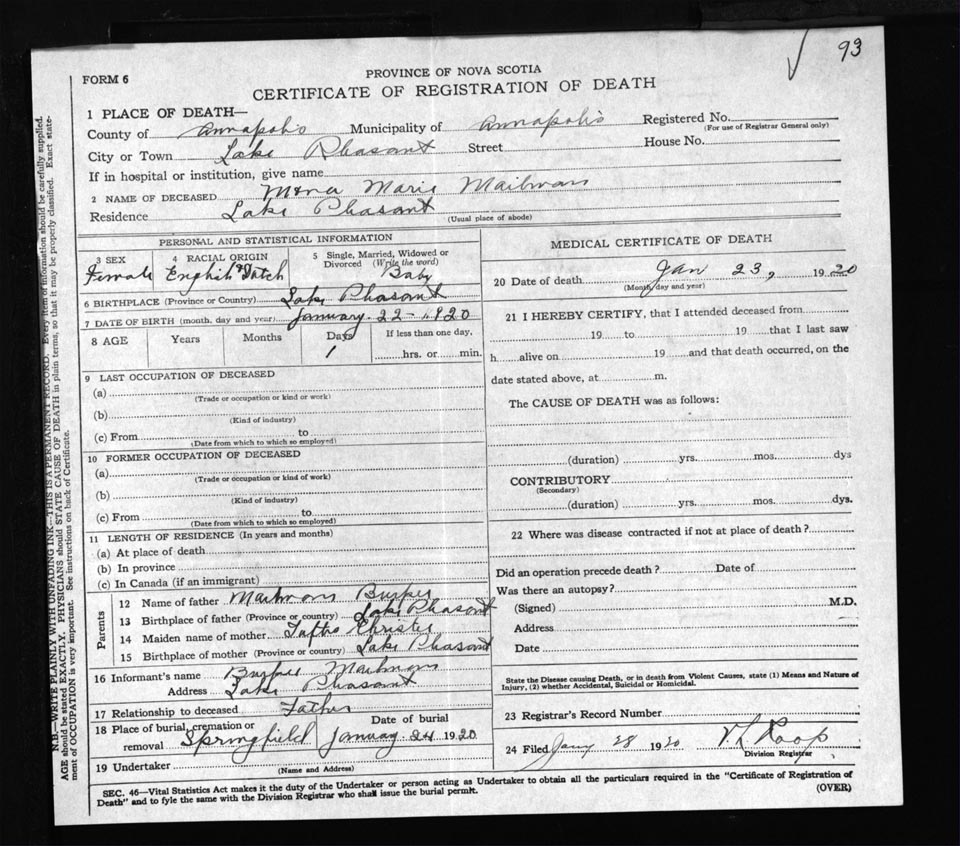 93
FORM 6
PROVINCE OF NOVA SCOTIA
CERTIFICATE OF REGISTRATION OF DEATH
1 PLACE OF DEATH—
County of Annapolis Municipality of Annapolis Registered No.
(For use of Registrar General only)
City or Town Lake Pleasant Street House No.
If in hospital or institution, give name
2 NAME OF DECEASED Mona Marie Mailman
Residence Lake Pleasant
(Usual place of abode)
PERSONAL AND STATISTICAL INFORMATION
3 SEX 4 RACIAL ORIGIN 5 Single, Married, Widowed or Divorced (Write the word)
Female English & Dutch Baby
6 BIRTHPLACE (Province or Country) Lake Pleasant
7 DATE OF BIRTH (month, day and year) January 22 - 1920
8 AGE Years Months Days If less than one day,
1 hrs. or min.
9 LAST OCCUPATION OF DECEASED
(a)
(Trade or occupation or kind or work)
(b)
(Kind of industry)
(c) From to
(Date from which to which so employed)
10 FORMER OCCUPATION OF DECEASED
(a)
(Trade or occupation or kind of work)
(b)
(Kind of industry)
(c) From to
(Date from which to which so employed)
11 LENGTH OF RESIDENCE (In years and months)
(a) At place of death
(b) In province
(c) In Canada (if an immigrant)
Parents
12 Name of father Mailman Burpee
13 Birthplace of father (Province or country) Lake Pleasant
14 Maiden name of mother Christie
15 Birthplace of mother (Province or country) Lake Pleasant
16 Informant's name Burpee Mailman
Address Lake Pleasant
17 Relationship to deceased Father
18 Place of burial, cremation or removal Springfield Date of burial January 24 1920
19 Undertaker
(Name and Address)
MEDICAL CERTIFICATE OF DEATH
20 Date of death Jan 23, 1920
(Month, day and year)
21 I HEREBY CERTIFY, that I attended deceased from
19 to 19 that I last saw
h alive on 19 and that death occurred, on the
date stated above, at m.
The CAUSE OF DEATH was as follows:
(duration) yrs. mos. dys
CONTRIBUTORY
(Secondary)
(duration) yrs. mos. dys.
22 Where was disease contracted if not at place of death?
Did an operation precede death? Date of
Was there an autopsy?
(Signed) M.D.
Address
Date
State the Disease causing Death, or in death from Violent Causes, state (1) Means and Nature of
Injury, (2) whether Accidental, Suicidal or Homicidal.
23 Registrar's Record Number
24 Filed Jany 28 1920 V L Roop
Division Registrar
SEC. 46—Vital Statistics Act makes it the duty of the Undertaker or person acting as Undertaker to obtain all the particulars required in the "Certificate of Registration of
Death" and to fyle the same with the Division Registrar who shall issue the burial permit.
(OVER)
N.B.—WRITE PLAINLY WITH UNFADING INK—THIS IS A PERMANENT RECORD. Every item of information should be carefully supplied.
AGE should be stated EXACTLY. PHYSICIANS should STATE CAUSE OF DEATH in plain terms, so that it may be properly classified. Exact state-
ment of OCCUPATION is very important. See instructions on back of Certificate.